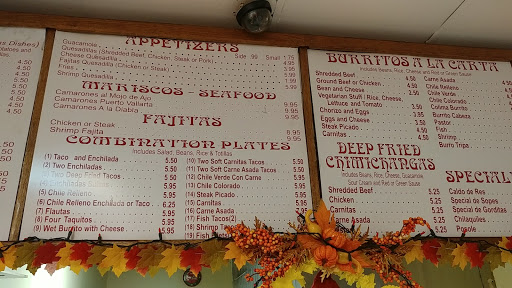 as Dishes)
4.50
4.50
5.50
5.50
5.50
5.50
APPETIZERS
Guacamole Side .99 Small 1.75
Quesadillas (Shredded Beef, Chicken, Steak or Pork)
Cheese Quesadillas
Fajitas Quesadilla (Chicken or Steak)
Fries
Shrimp Quesadilla
MARISCOS - SEAFOOD
Camarones al Mojo de Ajo
Camarones Puerto Vallarta
Camarones A la Diabra
FAJITAS
Chicken or Steak
Shrimp Fajita
COMBINATION PLATES
Includes Salad, Beans, Rice & Totillas
(1) Taco and Enchilada 5.50
(2) Two Enchiladas 5.50
(3) Two Deep Fried Tacos 5.50
Enchiladas 5.95
(5) Chile Relleno 5.95
(6) Chile Relleno Enchilada or Taco 6.25
(7) Flautas 5.95
(8) Four Taquitos 5.95
(9) Wet Burrito with Cheese 5.95
(10) Two Soft Carnitas Tacos 5.50
(11) Two Soft Carne Asada Tacos 5.50
(12) Chile Verde Con Carne 5.95
(13) Chile Colorado 5.95
(14) Steak Picado 5.95
(15) Carnitas 5.95
(16) Carne Asada
(17) Fish Tacos(2)
(18) Shrimp
(19) Fish
BURRITOS A LA CARTA
Includes Beans, Rice, Cheese and Red or Green Sauce
Shredded Beef 4.50
Ground Beef or Chicken 4.50
Bean and Cheese 2.50
Vegetarian Stuff / Rice, Cheese,
Lettuce and Tomato
Chorizo and Eggs
Eggs and Cheese
Steak Picado
Carnitas 4.50
Carne Asada
Chile Relleno
Chile Verde
Chile Colorado
Burrito Cabeza
Pastor
Fish
Shrimp
Burro Tripa
DEEP FRIED
CHIMICHANGAS
Includes Beans, Rice, Cheese, Guacamole,
Sour Cream and Red or Green Sauce
Shredded Beef 5.25
Chicken 5.25
Carnitas 5.25
Carne Asada 5.25
5.25
SPECIAL
Caldo de Res
Special de Sopes
Special de Gorditas
Chilaquiles
Posole